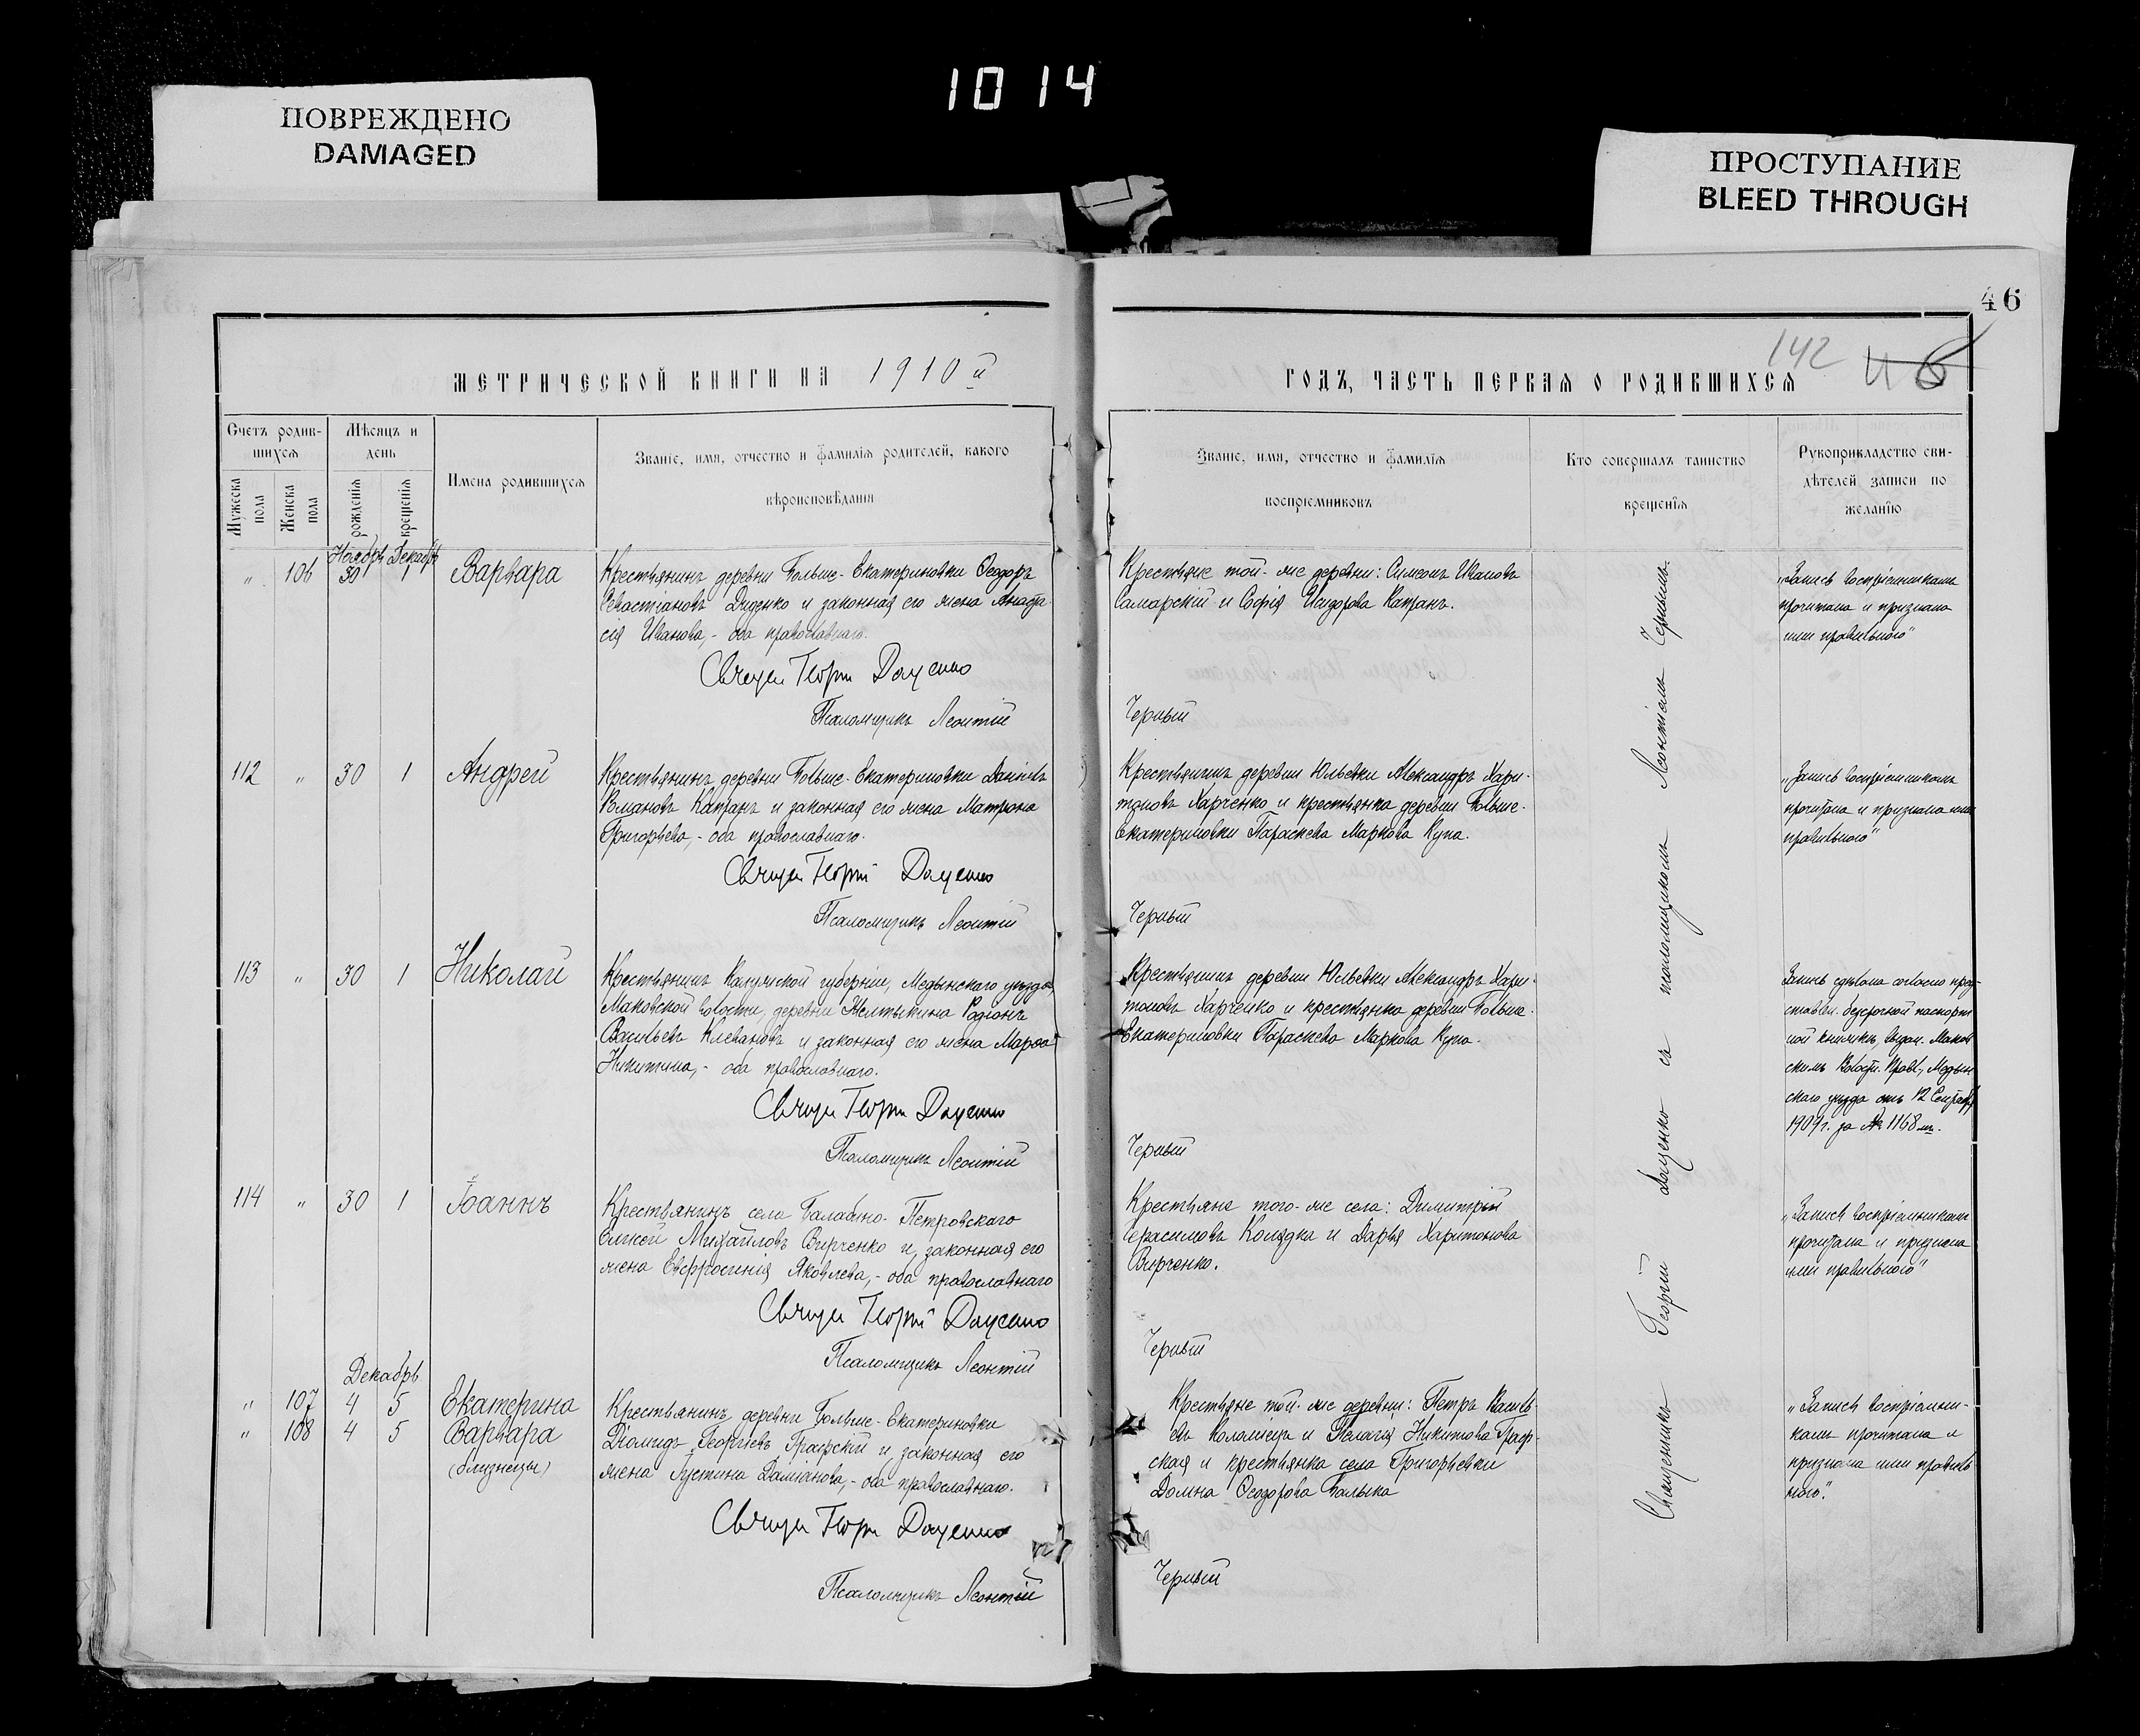 1014
ПОВРЕЖДЕНО
DAMAGED
ПРОСТУПАНИЕ
BLEED THROUGH
46
142
МЕТРИЧЕСКОЙ КНИГИ НА 1910й
ГОДЪ, ЧАСТЬ ПЕРВАЯ О РОДИВШИХСЯ
Счетъ родив-
шихся
Мужеска
пола
Женска
пола
Мѣсяцъ и
день
рожденія
крещенія
Имена родившихся
Званіе, имя, отчество и фамилія родителей, какого
вѣроисповѣданія
Званіе, имя, отчество и фамилія
воспріемниковъ
Кто совершалъ таинство
крещенія
Рукоприкладство сви-
дѣтелей записи по
желанію
Ноябрь Декабрь
" 106 30 1 Варвара
Крестьянинъ деревни Больше-Екатериновки Ѳеодоръ
Севастіановъ Диденко и законная его жена Анаста-
сія Иванова,- оба православнаго.
Священ Георгій Доценко
Псаломщикъ Леонтій
Крестьяне той-же деревни: Симеонъ Ивановъ
Самарскій и Софія Исидорова Катранъ.
Черный
"Запись воспріемникамъ
прочитана и признана
ими правильного"
112 " 30 1 Андрей
Крестьянинъ деревни Больше-Екатериновки Даніилъ
Романовъ Катранъ и законная его жена Матрона
Григорьева,- оба православнаго.
Священ Георгій Доценко
Псаломщикъ Леонтій
Крестьянинъ деревни Юльевки Александръ Хари-
тоновъ Харченко и крестьянка деревни Больше-
Екатериновки Параскева Маркова Куца.
Черный
"Запись воспріемникамъ
прочитана и признана ими
правильного"
113 " 30 1 Николай
Крестьянинъ Калужской губерніи, Медынскаго уѣзда,
Маковской волости, деревни Желтыкина Родіонъ
Васильевъ Клевановъ и законная его жена Марѳа
Никитина,- оба православнаго.
Священ Георгій Доценко
Псаломщикъ Леонтій
Крестьянинъ деревни Юльевки Александръ Хари-
тоновъ Харченко и крестьянка деревни Больше-
Екатериновки Параскева Маркова Куца.
Черный
Запись сдѣлана согласно пред-
ставлен. безсрочной паспорт
ной книжки, выдан. Маков
скимъ Волост. Правл., Медын
скаго уѣзда отъ 12 Сентября
1909 г. за № 1168мъ.
114 " 30 1 Іоаннъ
Крестьянинъ села Балабино-Петровскаго
Елисей Михайловъ Вирченко и законная его
жена Евфросинія Яковлева,- оба православнаго
Священ Георгій Доценко
Псаломщикъ Леонтій
Крестьяне того-же села: Димитрій
Герасимовъ Колядка и Дарья Харитонова
Вирченко.
Черный
"Запись воспріемникамъ
прочитана и признана
ими правильного"
Декабрь
" 107 4 5 Екатерина
" 108 4 5 Варвара
(близнецы)
Крестьянинъ деревни Больше-Екатериновки
Діомидъ Георгіевъ Графскій и законная его
жена Іустина Даміанова,- оба православнаго.
Священ Георгій Доценко
Псаломщикъ Леонтій
Крестьяне той-же деревни: Петръ Василь
евъ Коломіецъ и Пелагія Никитова Граф-
ская и крестьянка села Григорьевки
Домна Ѳеодорова Балыка
Черный
"Запись воспріемни-
камъ прочитана и
признана ими правиль
ного".
Священникъ Георгій Доценко съ псаломщикомъ Леонтіемъ Чернымъ.